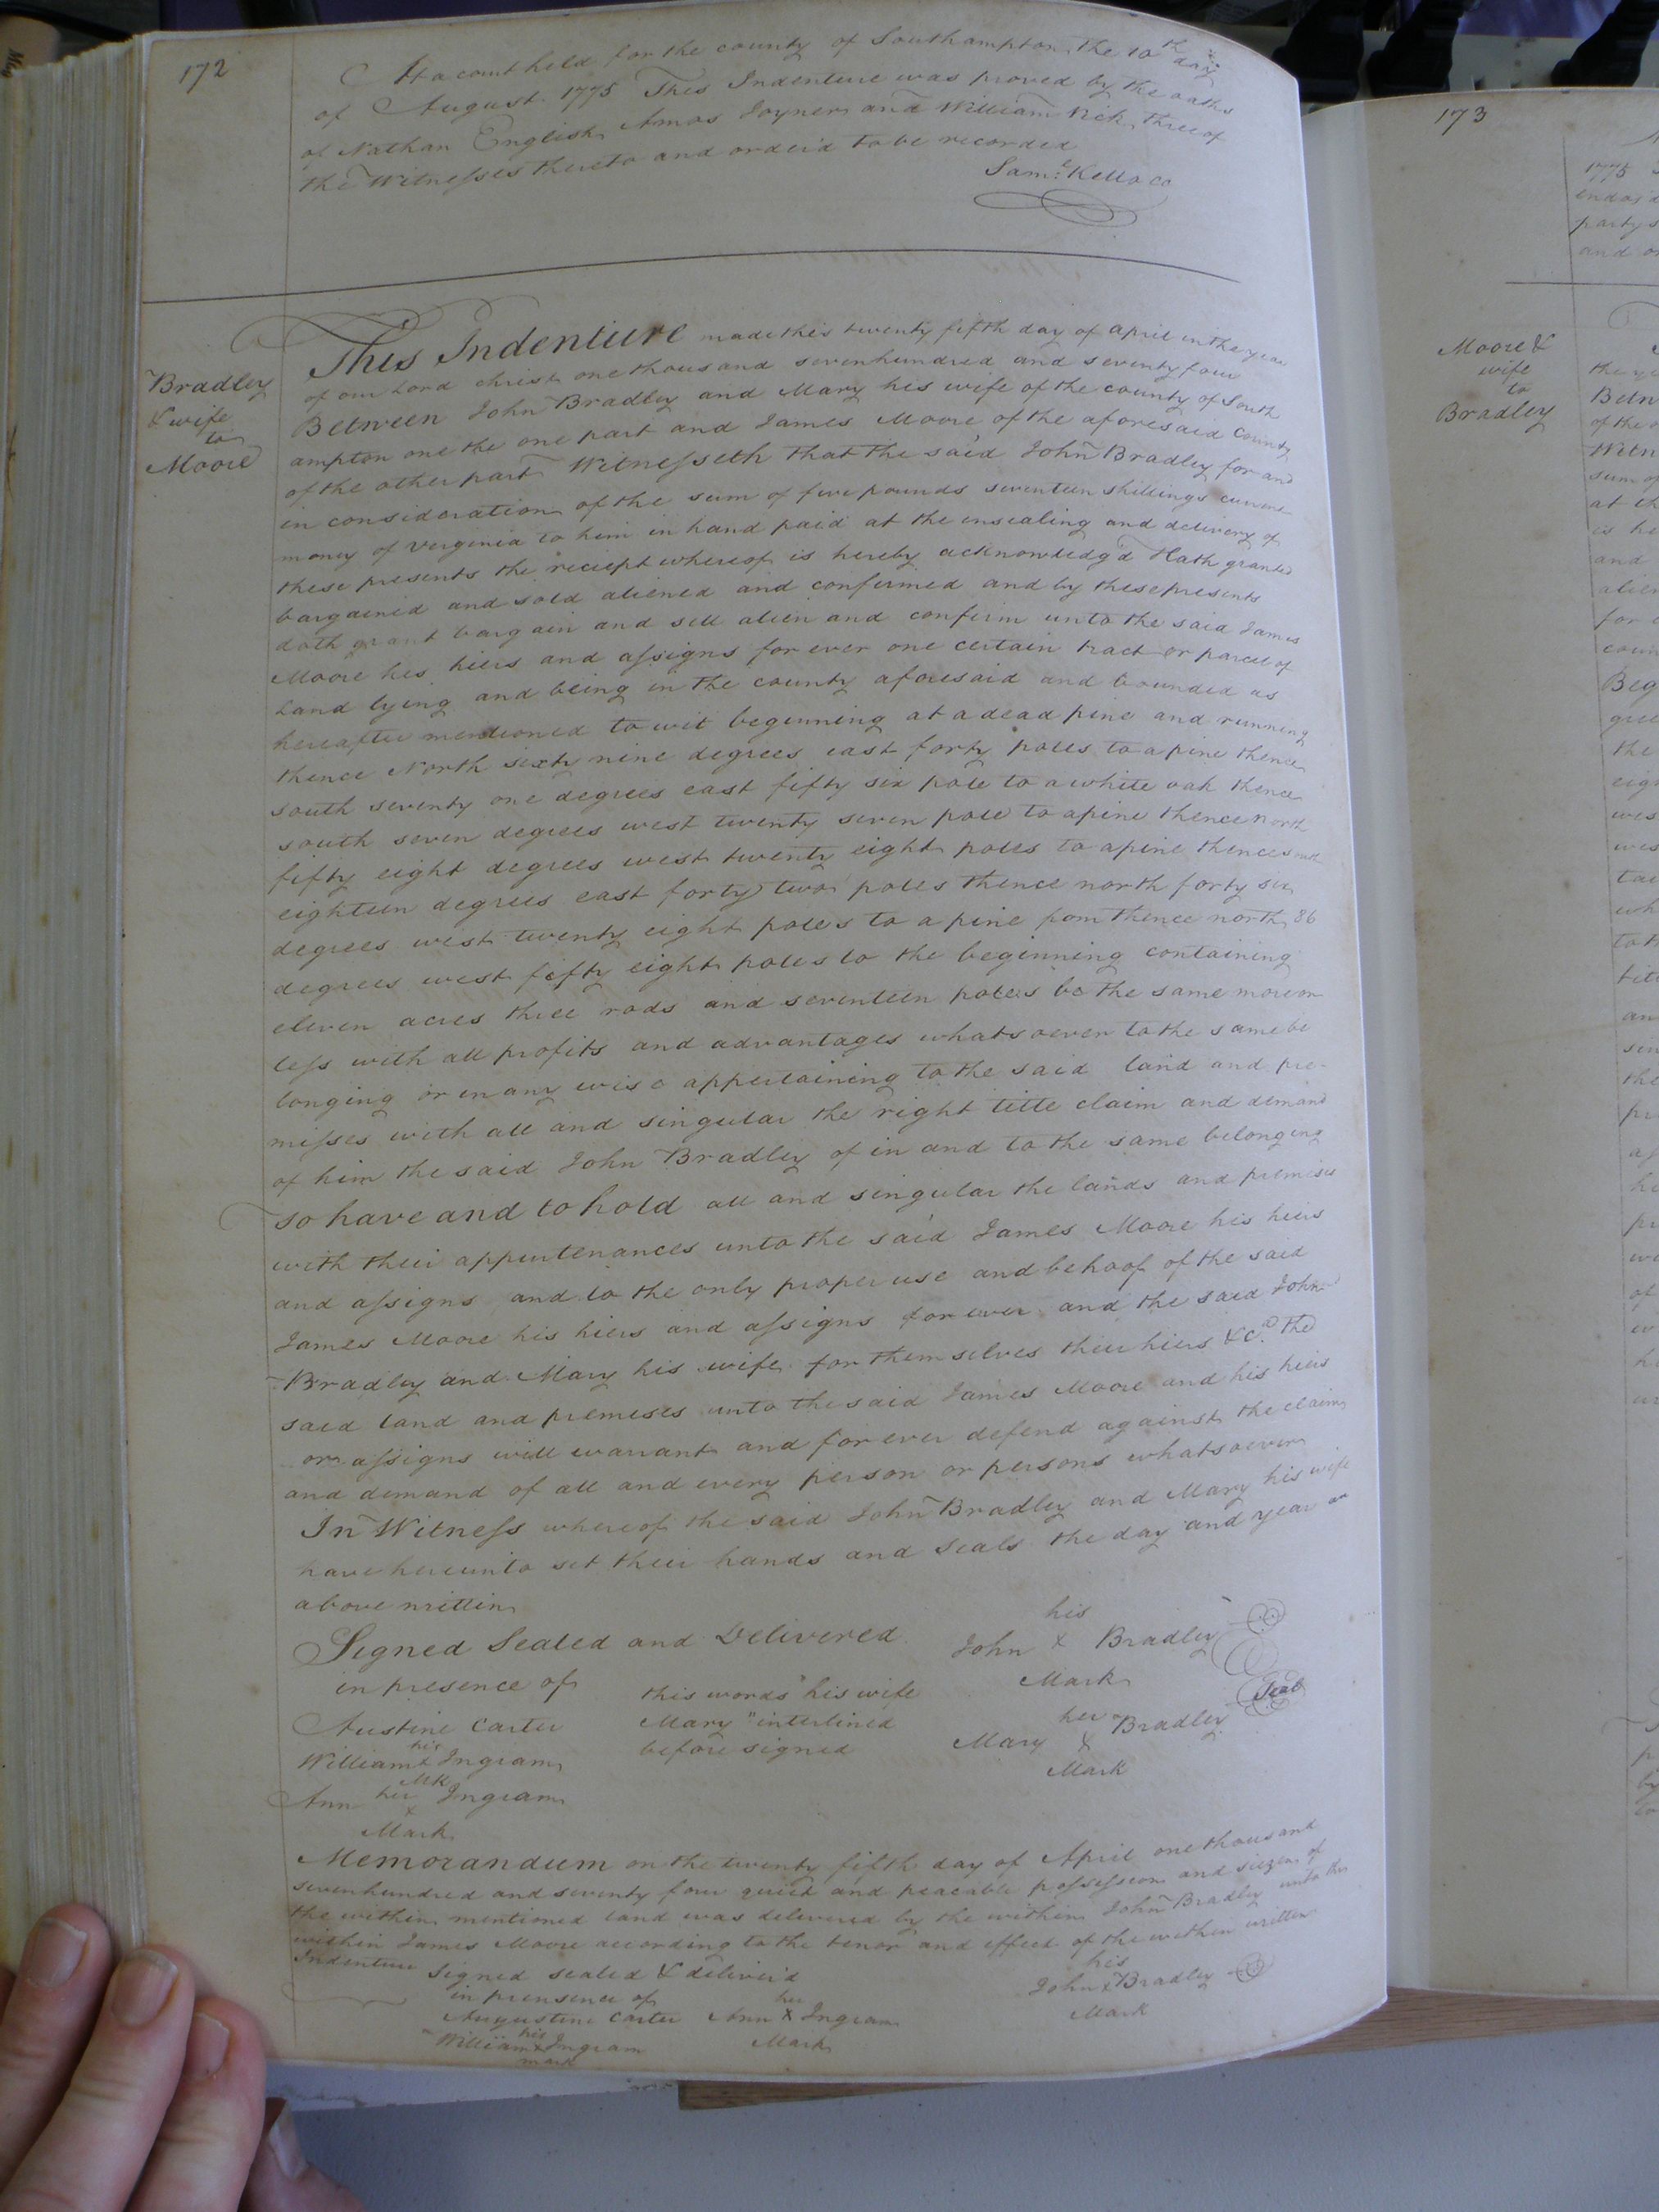 172
At a court held for the county of Southampton the 10th day
of August 1775 This Indenture was proved by the oaths
of Nathan English, Amos Joyner and William Vick three of
the Witnesses thereto and order'd to be recorded
Saml: Kello CC
Bradley
& wife
to
Moore
This Indenture made this twenty fifth day of april in the year
of our Lord christ one thousand sevenhundred and seventy four
Between John Bradley and Mary his wife of the county of South
ampton one the one part and James Moore of the aforesaid County
of the other part Witnesseth that the said John Bradley for and
in consideration of the sum of five pounds seventeen shillings current
money of verginia to him in hand paid at the ensealing and delivery of
these presents the reciept whereof is hereby acknowledg'd Hath granted
bargained and sold aliened and confirmed and by these presents
doth grant bargain and sell alien and confirm unto the said James
Moore his hiers and assigns for ever one certain tract or parcel of
Land lying and being in the county aforesaid and bounded as
hereafter mentioned to wit beginning at a dead pine and running
thence North sixty nine degrees east forty poles to a pine thence
south seventy one degrees east fifty six pole to a white oak thence
south seven degrees west twenty seven pole to a pine thence North
fifty eight degrees west twenty eight poles to a pine thence south
eighteen degrees east forty two poles thence north forty six
degrees west twenty eight poles to a pine from thence north 86
degrees west fifty eight poles to the beginning containing
eleven acres three rods and seventeen poles be the same more or
less with all profits and advantages whatsoever to the same be
longing or in any wise appertaining to the said land and pre-
misses with all and singular the right title claim and demand
of him the said John Bradley of in and to the same belonging
so have and to hold all and singular the lands and premises
with their appurtenances unto the said James Moore his hiers
and assigns and to the only proper use and behoof of the said
James Moore his hiers and assigns forever and the said John
Bradley and Mary his wife for themselves their hiers &c. the
said land and premises unto the said James Moore and his hiers
or assigns will warrant and for ever defend against the claim
and demand of all and every person or persons whatsoever
In Witness whereof the said John Bradley and Mary his wife
have hereunto set their hands and Seals the day and year
above written
Signed Sealed and Delivered
in presence of
Austine Carter
William his x Ingram
Mk
Ann her x Ingram
Mark
this words "his wife
Mary" interlined
before signed
his
John x Bradley
Mark
Seal
her
Mary x Bradley
Mark
Memorandum on the twenty fifth day of April one thousand
sevenhundred and seventy four quiet and peacable possession and siezen of
the within mentioned land was delivered by the within John Bradley unto the
within James Moore according to the tenor and effect of the within written
Indenture
signed sealed & deliver'd
in prensence of
Augustine Carter
William his x Ingram
mark
her
Ann x Ingram
Mark
his
John x Bradley
Mark
173
Moore &
wife
to
Bradley
1775
and
Beg
the